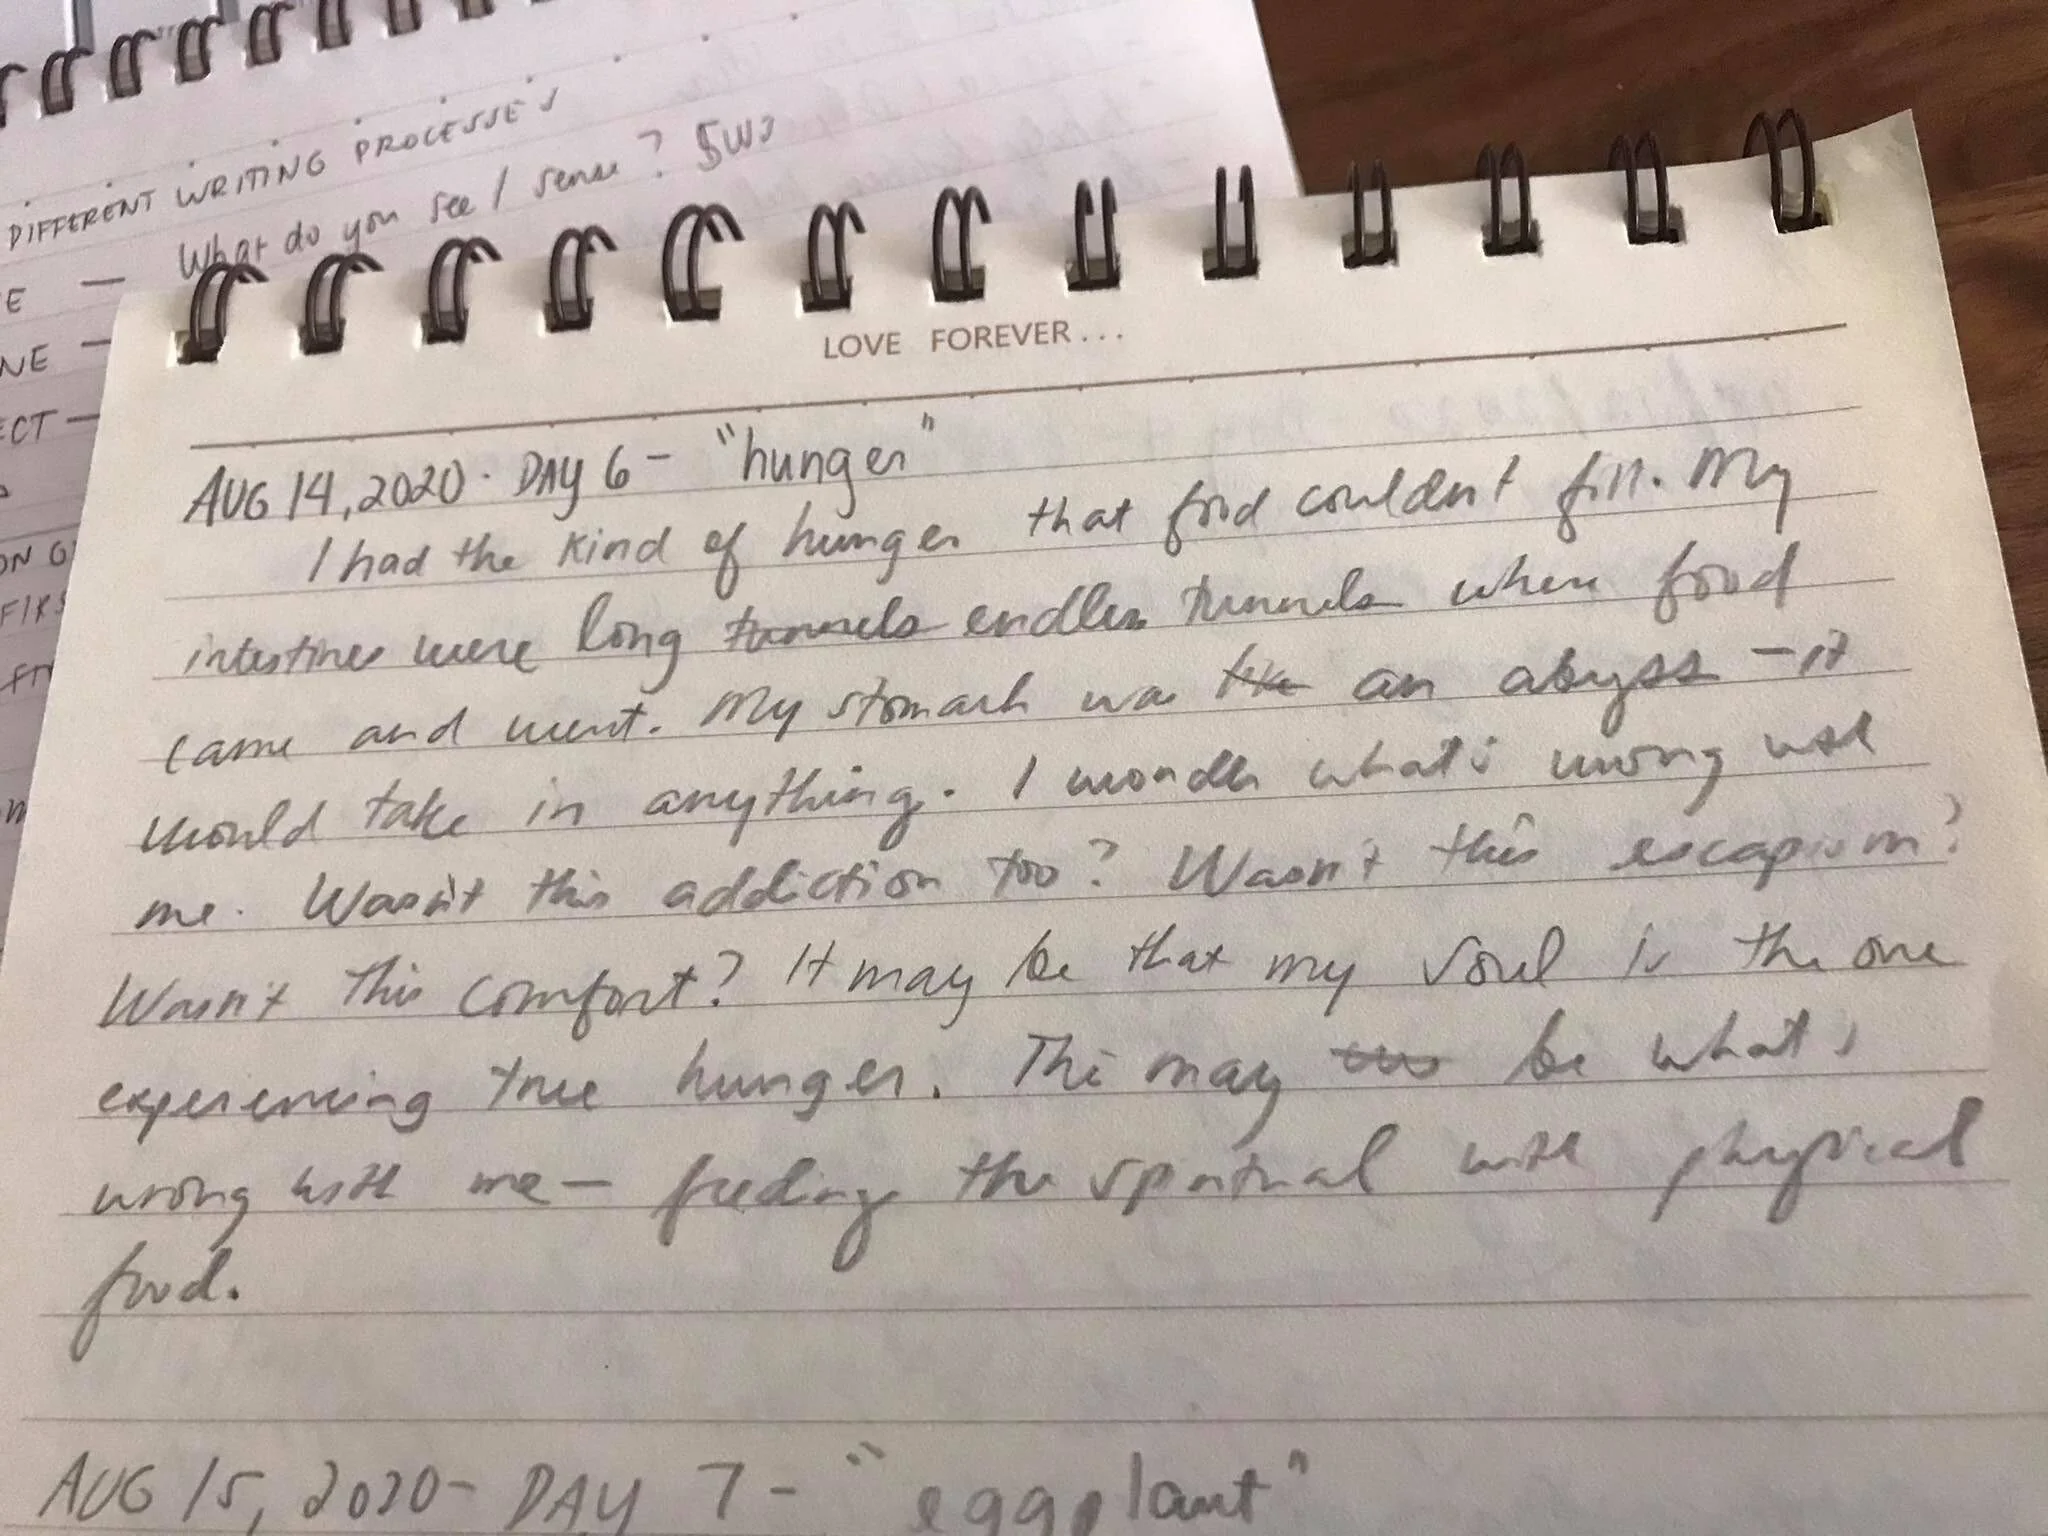 DIFFERENT WRITING PROCESSES
What do you see / sense? 5W's
E —
NE —
ECT —
ON G
FIRS
LOVE FOREVER...
AUG 14, 2020 · DAY 6 - "hunger"
I had the kind of hunger that food couldn't fill. My
intestines were long tunnels endless tunnels where food
came and went. My stomach was like an abyss - it
would take in anything. I wonder what's wrong with
me. Wasn't this addiction too? Wasn't this escapism?
Wasn't this comfort? It may be that my soul is the one
experiencing true hunger. This may be what's
wrong with me - feeding the spiritual with physical
food.
AUG 15, 2020 - DAY 7 - "eggplant"